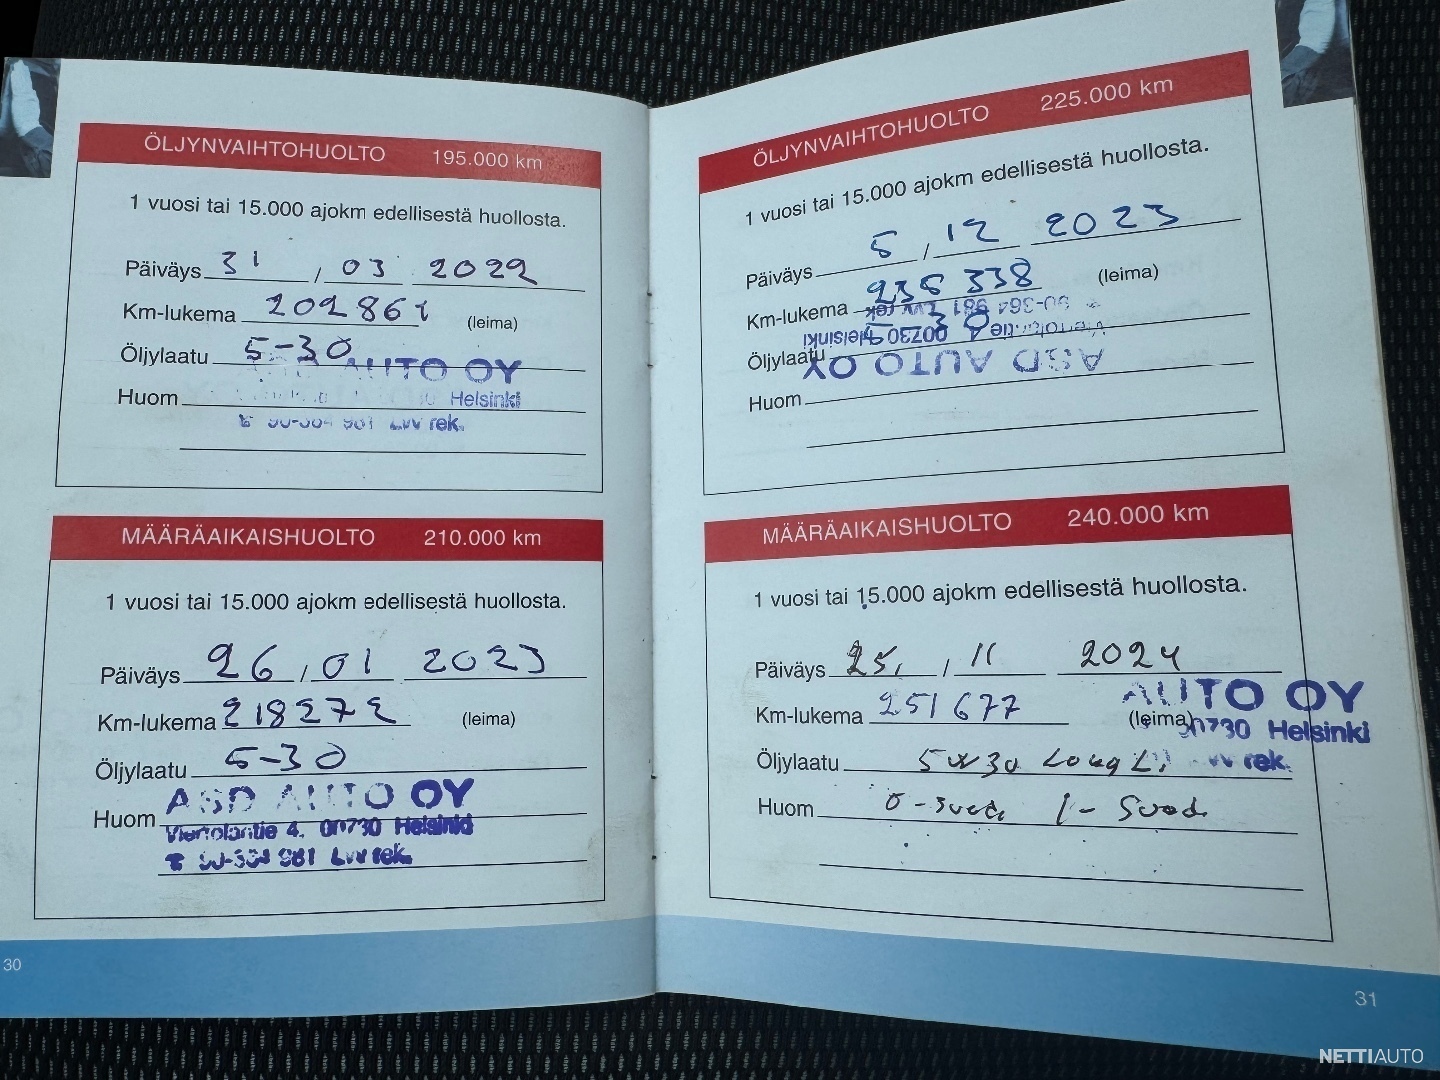 ÖLJYNVAIHTOHUOLTO 195.000 km
1 vuosi tai 15.000 ajokm edellisestä huollosta.
Päiväys 31 / 03 2022
Km-lukema 202861 (leima)
Öljylaatu 5-30
AUTO OY
Huom Helsinki
981 Lvv rek.
MÄÄRÄAIKAISHUOLTO 210.000 km
1 vuosi tai 15.000 ajokm edellisestä huollosta.
Päiväys 26 / 01 2023
Km-lukema 218272 (leima)
Öljylaatu 5-30
ASD AUTO OY
Huom Viertolantie 4, 00730 Helsinki
981 Lvv rek.
30
ÖLJYNVAIHTOHUOLTO 225.000 km
1 vuosi tai 15.000 ajokm edellisestä huollosta.
Päiväys 5 / 12 2023
Km-lukema 235 338 (leima)
Öljylaatu
ASD AUTO OY
00730 Helsinki
981 Lvv rek
Huom
MÄÄRÄAIKAISHUOLTO 240.000 km
1 vuosi tai 15.000 ajokm edellisestä huollosta.
Päiväys 25. / 11 2024
Km-lukema 251677 (leima)
AUTO OY
00730 Helsinki
rek.
Öljylaatu 5w30 Long
Huom
31
NETTIAUTO